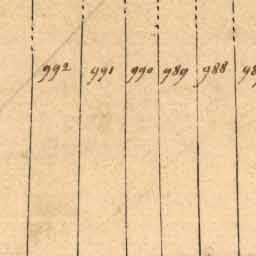 992 991 990 989 988